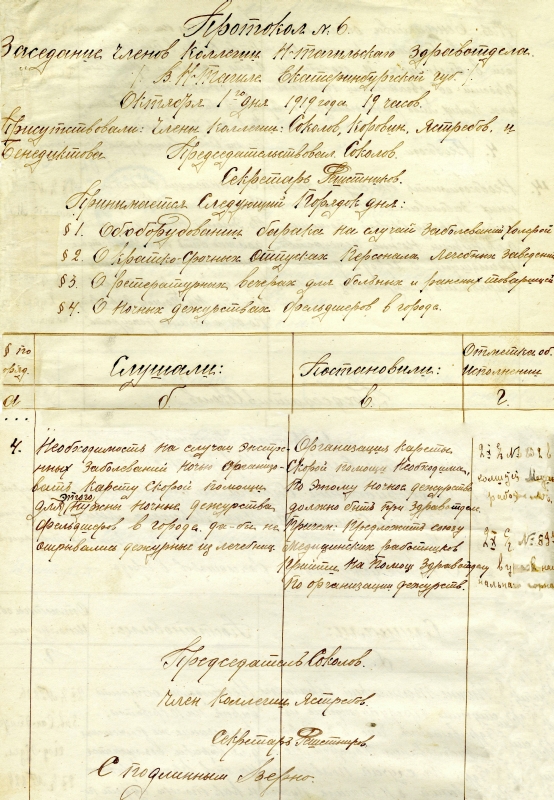 Протокол № 6.
Заседание членов Коллегии Н-Тагильского Здравотдела
В Н-Тагиле Екатеринбургской губ.
Октября 1го дня 1919 года 19 часов.
Присутствовали: Члены Коллегии: Соколов, Коровин, Ястребов, и
Бенедиктова Председательствовал Соколов.
Секретарь
Принимается Следующий Порядок дня:
§ 1. Об оборудовании барака на случай заболеваний холерой
§ 2. О кратко-срочных отпусках персонала лечебных заведений
§ 3. О вечерах для больных и раненых товарищей
§ 4. О ночных дежурствах фельдшеров в города.
§ по поряд.
Слушали:
Постановили:
Отметка об. исполнении
а б в г
...
4. Необходимость на случай экстре-
нных заболеваний ночью организо-
вать Карету Скорой помощи
для этого нужны ночные дежурства
фельдшеров в города, да-бы не
отрывались дежурные из лечебниц.
Организация кареты
Скорой помощи необходима,
По этому ночное дежурство
должно быть при Здравотделе
Причем: Предложить союзу
Медицинских работников
Прийти на помощ Здравотделу
По организации дежурств.
Председатель Соколов.
Член Коллегии Ястребов.
Секретарь
С подлинным Верно.